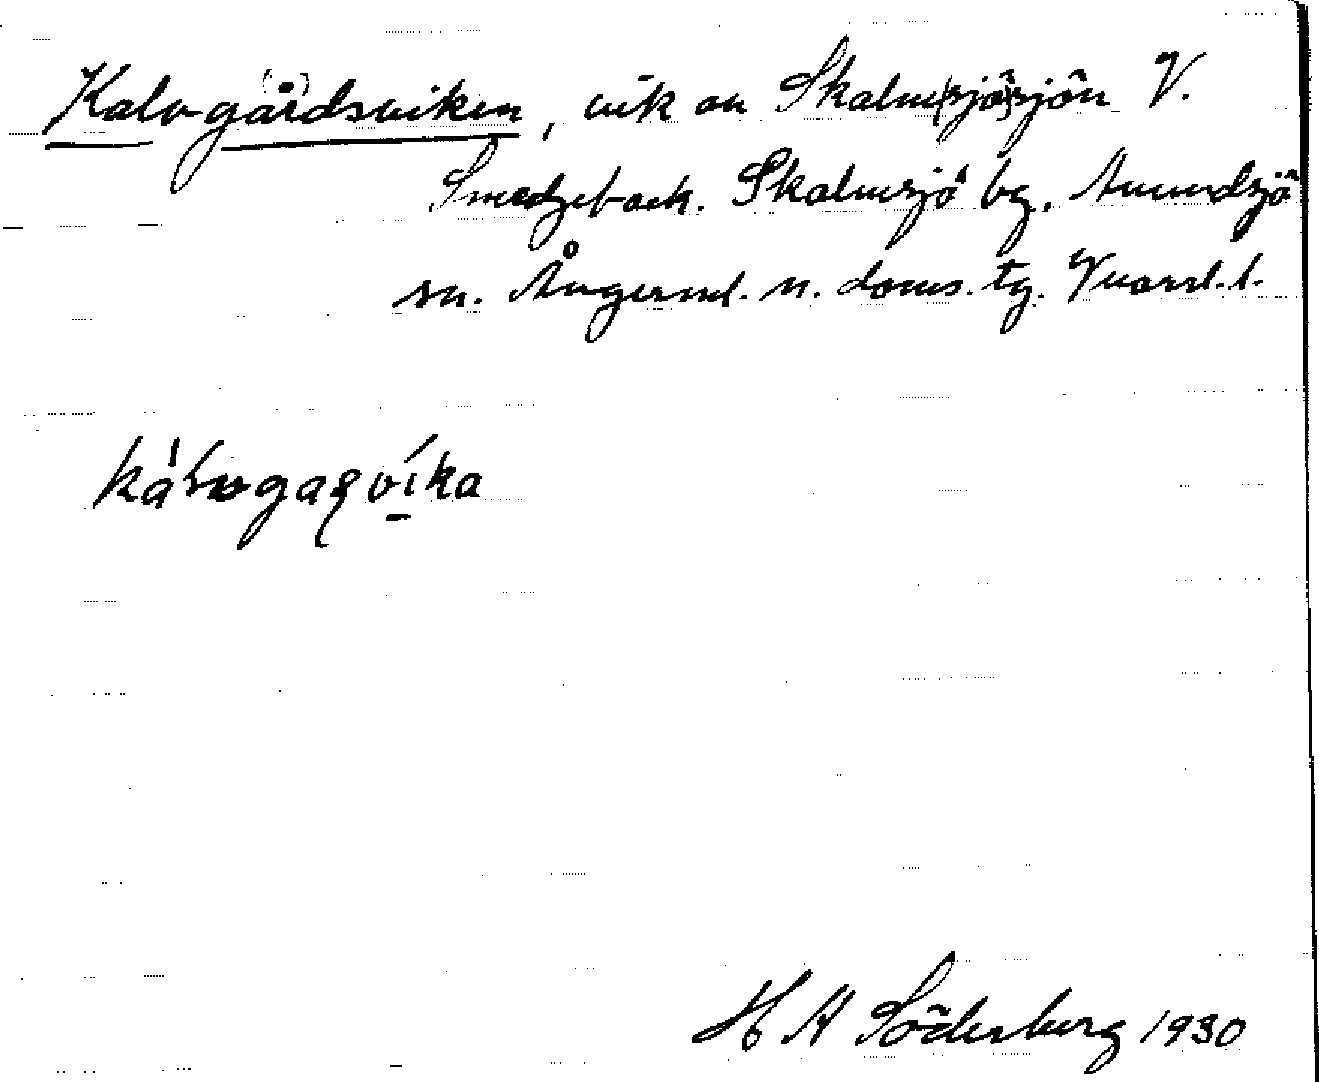 Kalvgårdsviken, vik av Skalm(sjö)sjön V.
Smedsbäck. Skalmsjö by. Anundsjö
sn. Ångerml. n. doms. tg. Vnorrl. l.
H A Söderberg 1930